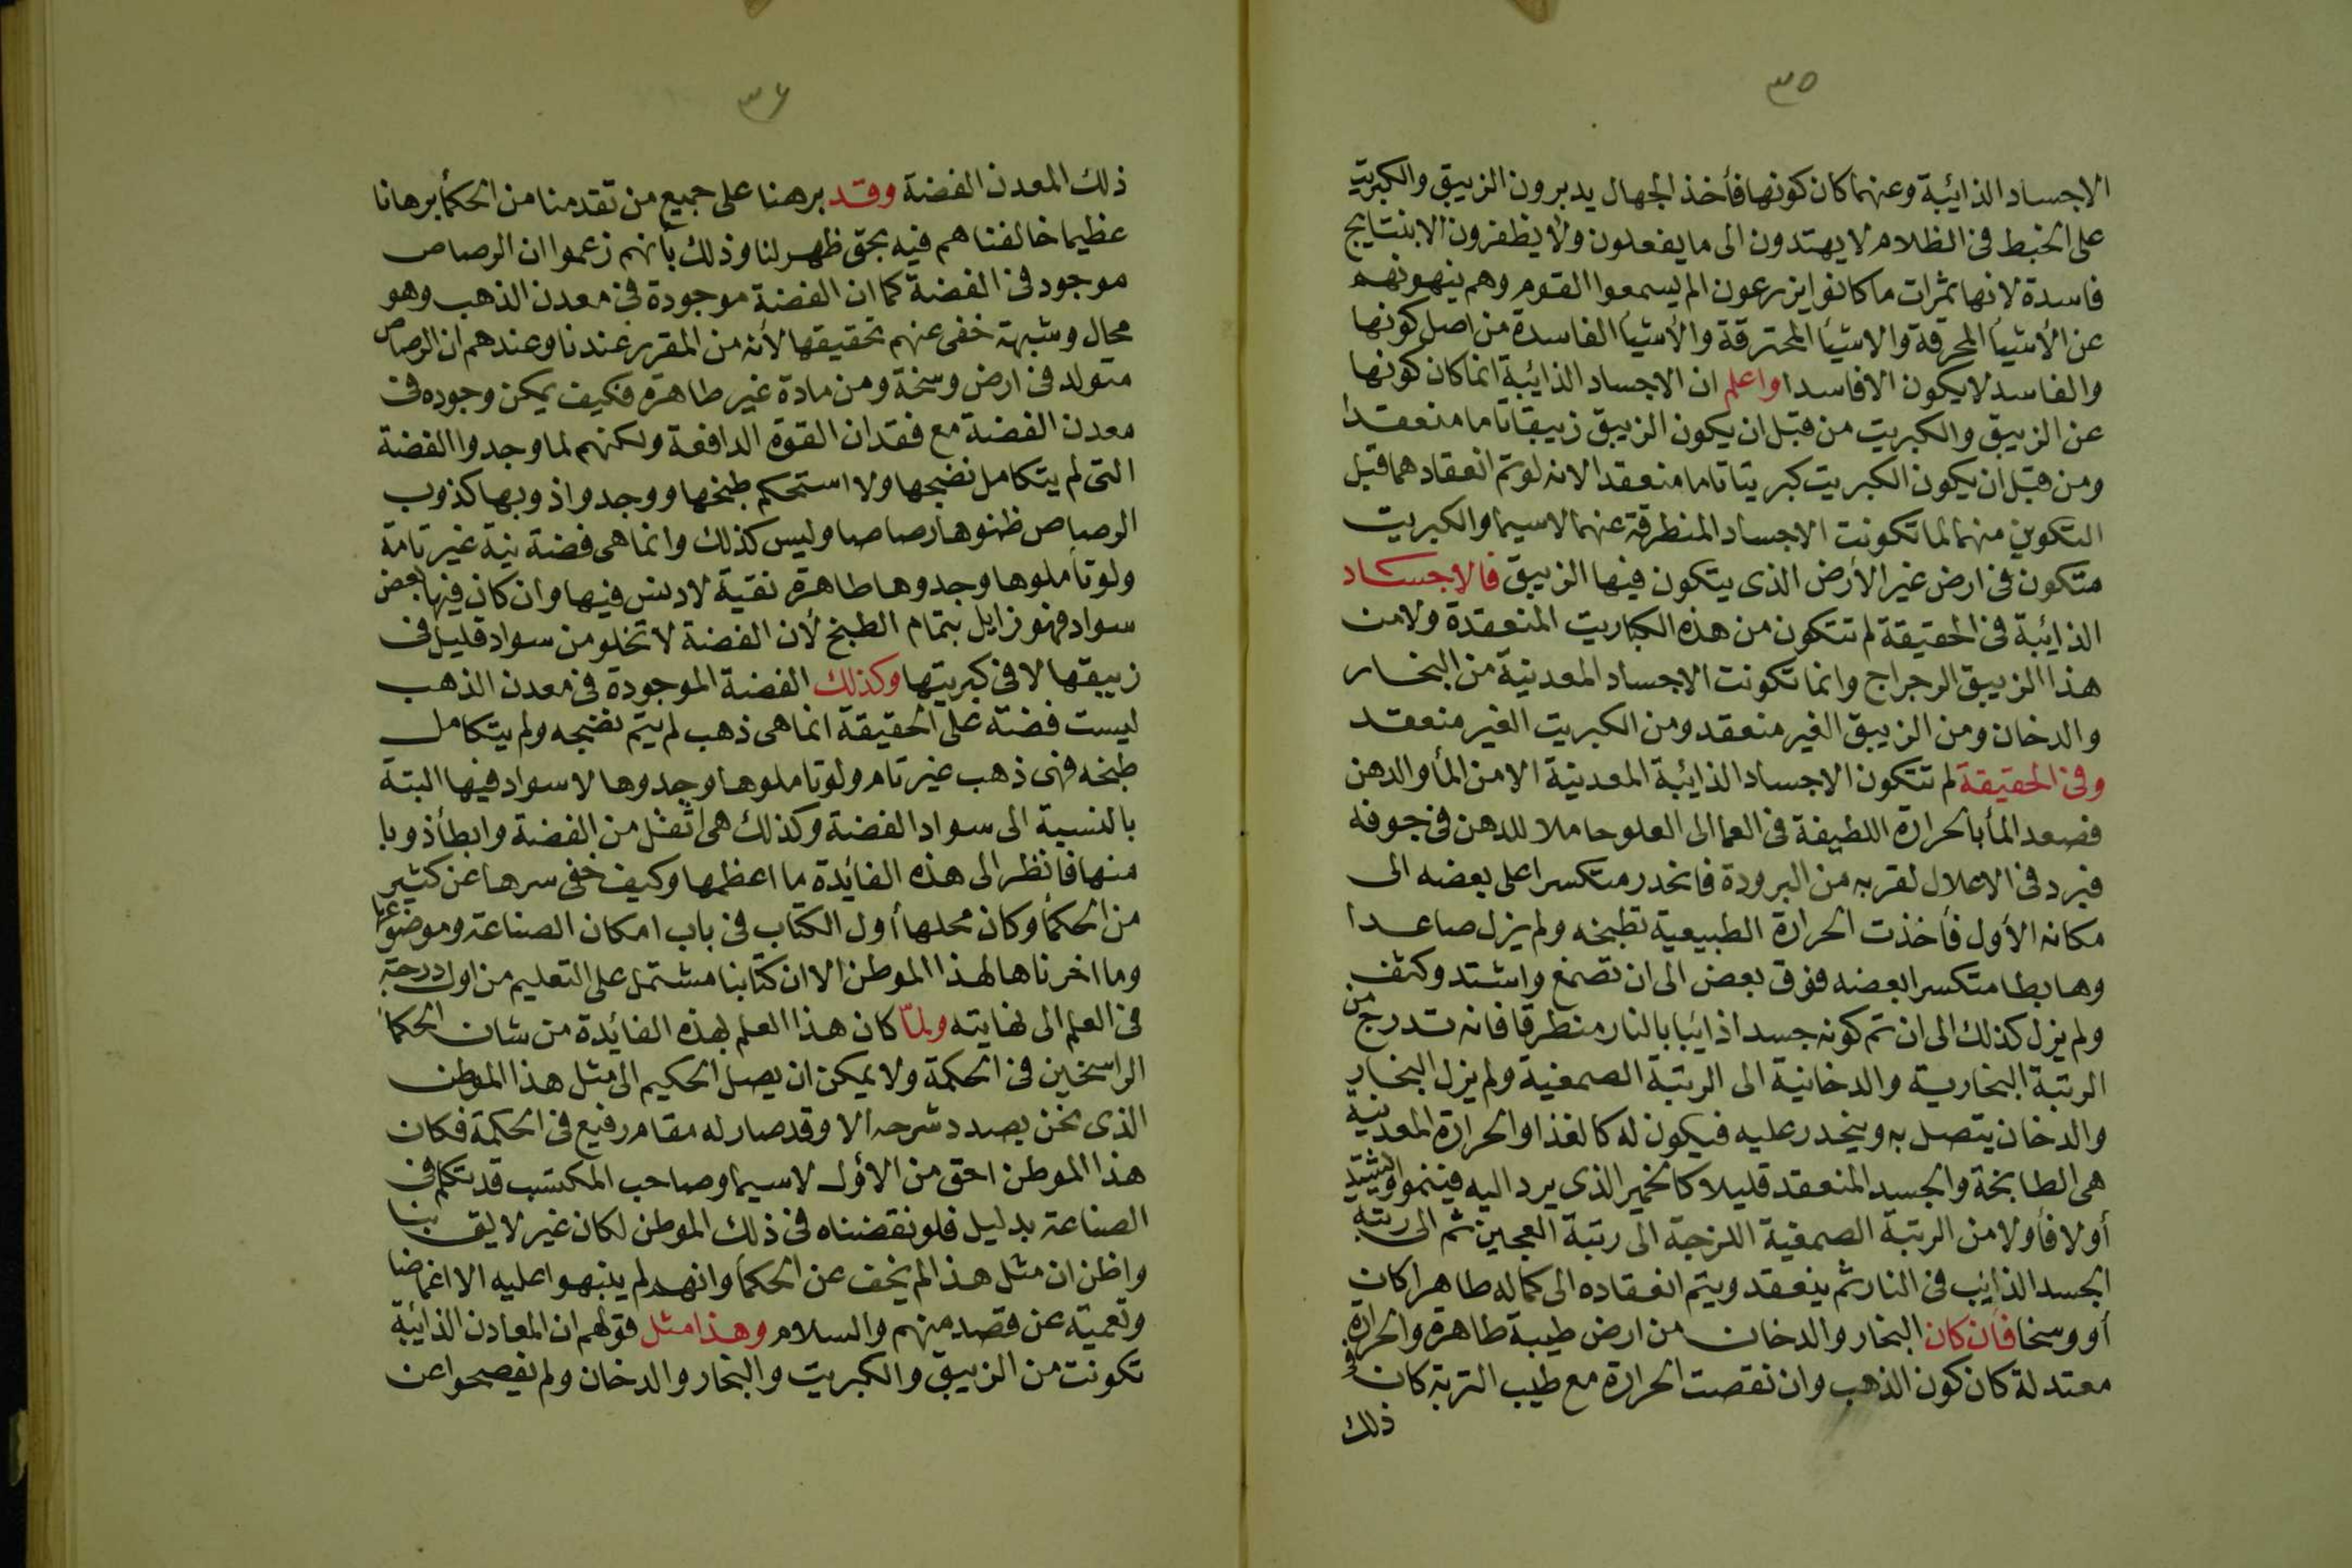 ٣٥
الاجساد الذائبة وعنهما كان كونها فأخذ الجهال يدبرون الزيبق والكبريت
على الخبط فى الظلام لا يهتدون الى ما يفعلون ولا يظفرون الا بنتايج
فاسدة لانها ثمرات ما كانوا يزرعون الم يسمعوا القوم وهم ينهونهم
عن الأشيأ المحرقة والاشيأ المحترقة والأشيأ الفاسدة من اصل كونها
والفاسد لا يكون الا فاسدا واعلم ان الاجساد الذائبة انما كان كونها
عن الزيبق والكبريت من قبل ان يكون الزيبق زيبقا تاما منعقدا
ومن قبل ان يكون الكبريت كبريتا تاما منعقدا لانه لو تم انعقادهما قبل
التكوين منهما لما تكونت الاجساد المنطرقة عنهما لاسيما والكبريت
متكون فى ارض غير الأرض الذى يتكون فيها الزيبق فالاجساد
الذائبة فى الحقيقة لم تتكون من هذه الكباريت المنعقدة ولا من
هذا الزيبق الرجراج وانما تكونت الاجساد المعدنية من البخار
والدخان ومن الزيبق الغير منعقد ومن الكبريت الغير منعقد
وفى الحقيقة لم تتكون الاجساد الذائبة المعدنية الا من المأ والدهن
فصعد المأ بالحرارة اللطيفة فى العما الى العلو حاملا للدهن فى جوفه
فبرد فى الاعلال لقربه من البرودة فانحدر متكسرا على بعضه الى
مكانه الأول فأخذت الحرارة الطبيعية تطبخه ولم يزل صاعدا
وهابطا متكسرا بعضه فوق بعض الى ان تصمغ واشتد وكثف
ولم يزل كذلك الى ان تم كونه جسدا ذائبا بالنار منطرقا فانه تدرج من
الرتبة البخارية والدخانية الى الرتبة الصمغية ولم يزل البخار
والدخان يتصل به وينحدر عليه فيكون له كالغذا والحرارة المعدنية
هى الطابخة والجسد المنعقد قليلا كالخمير الذى يرد اليه فينمو ويشتد
أولا فأولا من الرتبة الصمغية اللزجة الى رتبة العجين ثم الى رتبة
الجسد الذايب فى النار ثم ينعقد ويتم انعقاده الى كماله طاهرا كان
أو وسخا فأن كان البخار والدخان من ارض طيبة طاهرة والحرارة
معتدلة كان كون الذهب وان نقصت الحرارة مع طيب التربة كان فى
ذلك
٣٦
ذلك المعدن الفضة وقد برهنا على جميع من تقدمنا من الحكمأ برهانا
عظيما خالفناهم فيه بحق ظهر لنا وذلك بأنهم زعموا ان الرصاص
موجود فى الفضة كما ان الفضة موجودة فى معدن الذهب وهو
محال وشبهة خفى عنهم تحقيقها لأنه من المقرر عندنا وعندهم ان الرصاص
متولد فى ارض وسخة ومن مادة غير طاهرة فكيف يمكن وجوده فى
معدن الفضة مع فقدان القوة الدافعة ولكنهم لما وجدوا الفضة
التى لم يتكامل نضجها ولا استحكم طبخها ووجدوا ذوبها كذوب
الرصاص ظنوها رصاصا وليس كذلك وانما هى فضة نية غير تامة
ولو تأملوها وجدوها طاهرة نقية لا دنس فيها وان كان فيها بعض
سواد فهو زايل بتمام الطبخ لأن الفضة لا تخلو من سواد قليل فى
زيبقها لا فى كبريتها وكذلك الفضة الموجودة فى معدن الذهب
ليست فضة على الحقيقة انما هى ذهب لم يتم نضجه ولم يتكامل
طبخه فهى ذهب غير تام ولو تاملوها وجدوها لا سواد فيها البتة
بالنسبة الى سواد الفضة وكذلك هى اثقل من الفضة وابطأ ذوبا
منها فانظر الى هذه الفائدة ما اعظمها وكيف خفى سرها عن كثير
من الحكمأ وكان محلها أول الكتاب فى باب امكان الصناعة وموضوعها
وما اخرناها لهذا الموطن الا ان كتابنا مشتمل على التعليم من اول درجة
فى العلم الى نهايته ولمّا كان هذا العلم بهذه الفائدة من شان الحكمأ
الراسخين فى الحكمة ولا يمكن ان يصل الحكيم الى مثل هذا الموطن
الذى نحن بصدد شرحه الا وقد صار له مقام رفيع فى الحكمة فكان
هذا الموطن احق من الأول لاسيما وصاحب المكتسب قد تكلم فى
الصناعة بدليل فلو نقضناه فى ذلك الموطن لكان غير لايق بنا
واظن ان مثل هذا لم يخف عن الحكمأ وانهم لم ينبهوا عليه الا اغماضا
وتعمية عن قصد منهم والسلام وهذا مثل قولهم ان المعادن الذائبة
تكونت من الزيبق والكبريت والبخار والدخان ولم يفصحوا عن